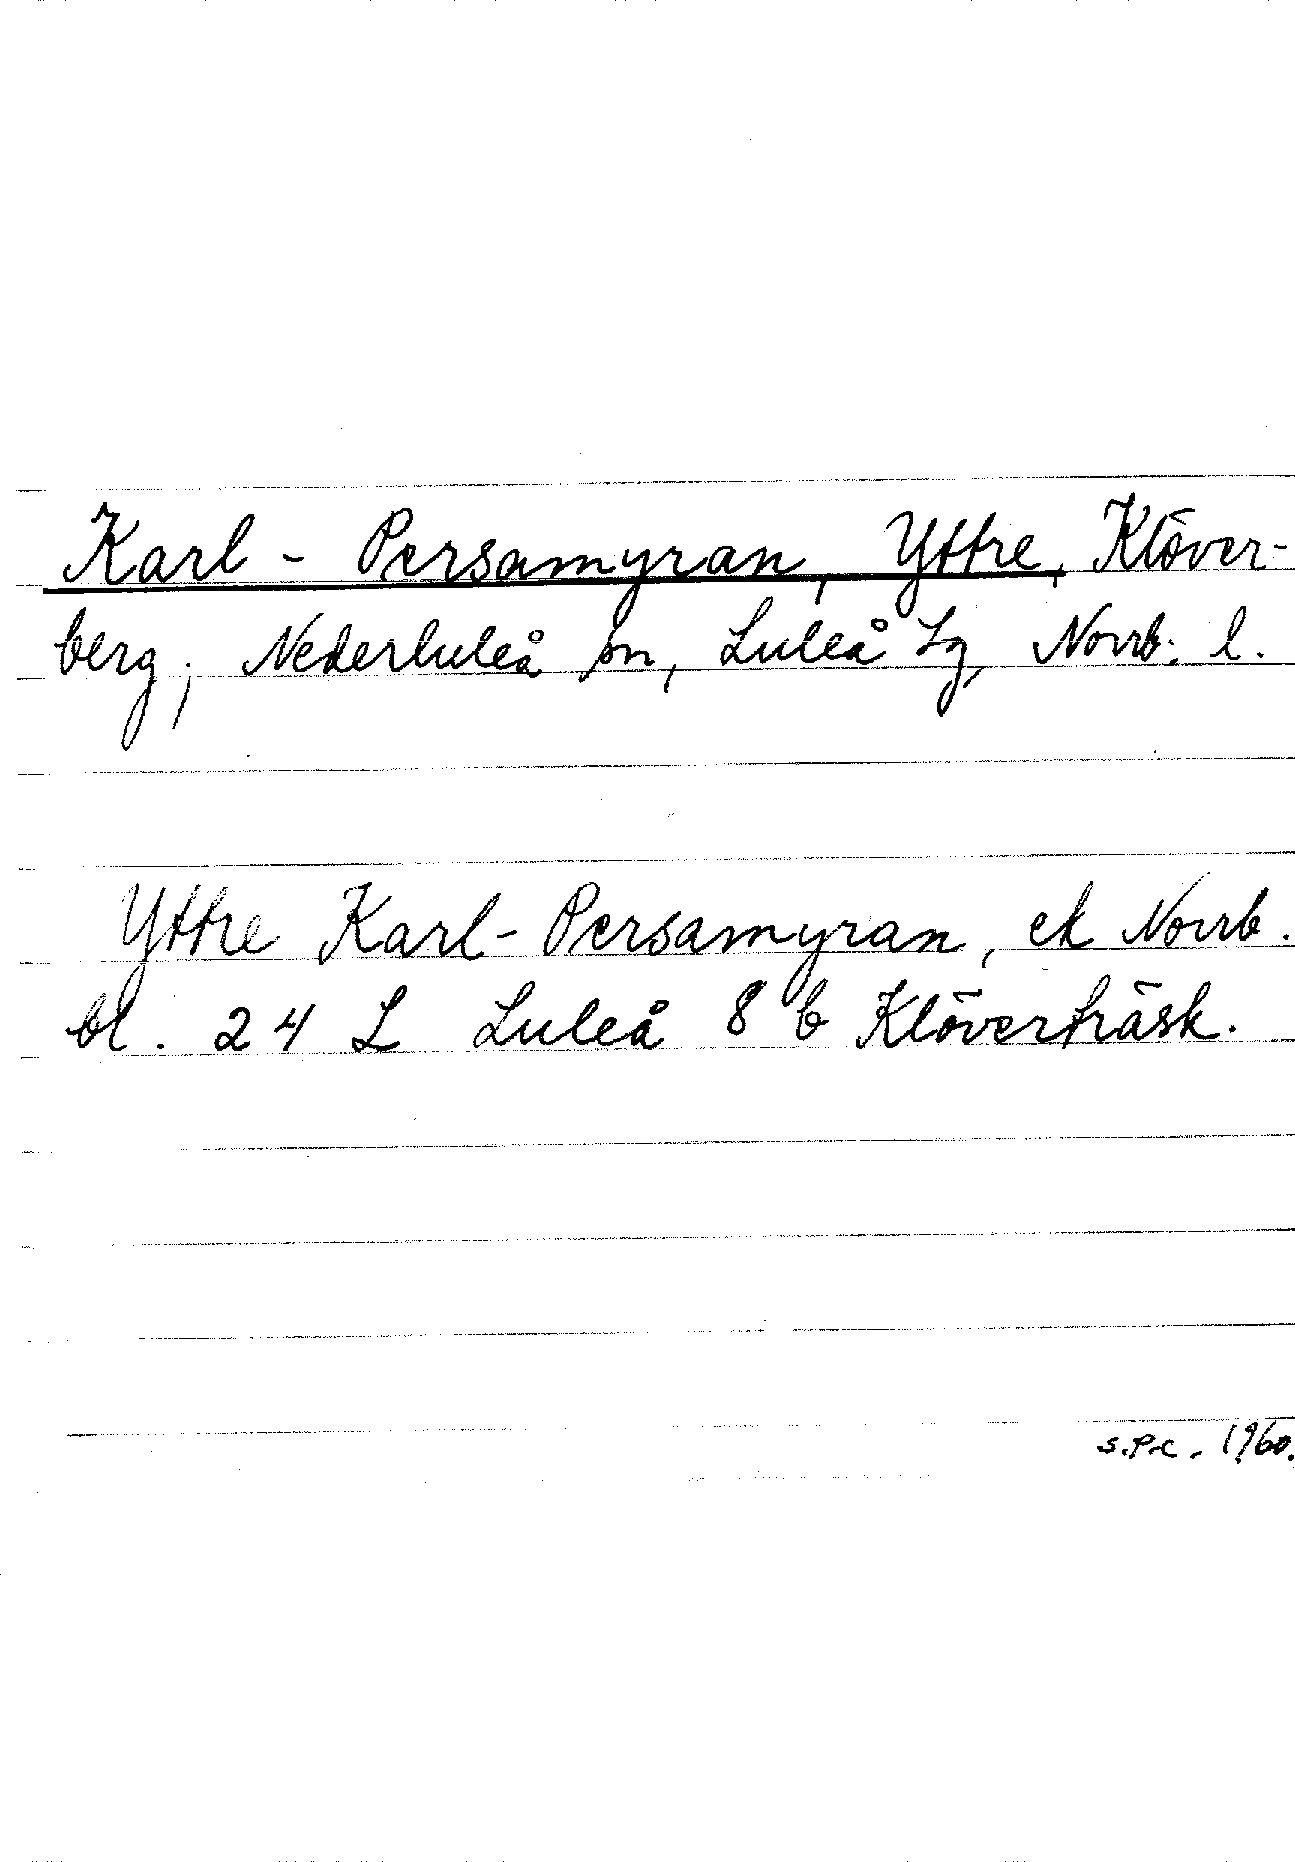 Karl - Persamyran, Yttre, Klöver-
berg, Nederluleå sn, Luleå Lg, Norrb. l.
Yttre Karl-Persamyran, ek Norrb.
bl. 24 L Luleå 8 b Klöverträsk.
S.P.C. 1960.